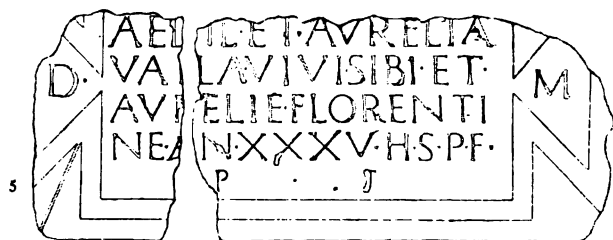 AE IL·ET·AVRELIA
VA LAVIVISIBI·ET·
D· M
AVRELIEFLORENTI
NE·AN·XXXV·H·S·P·F·
5 P · · T